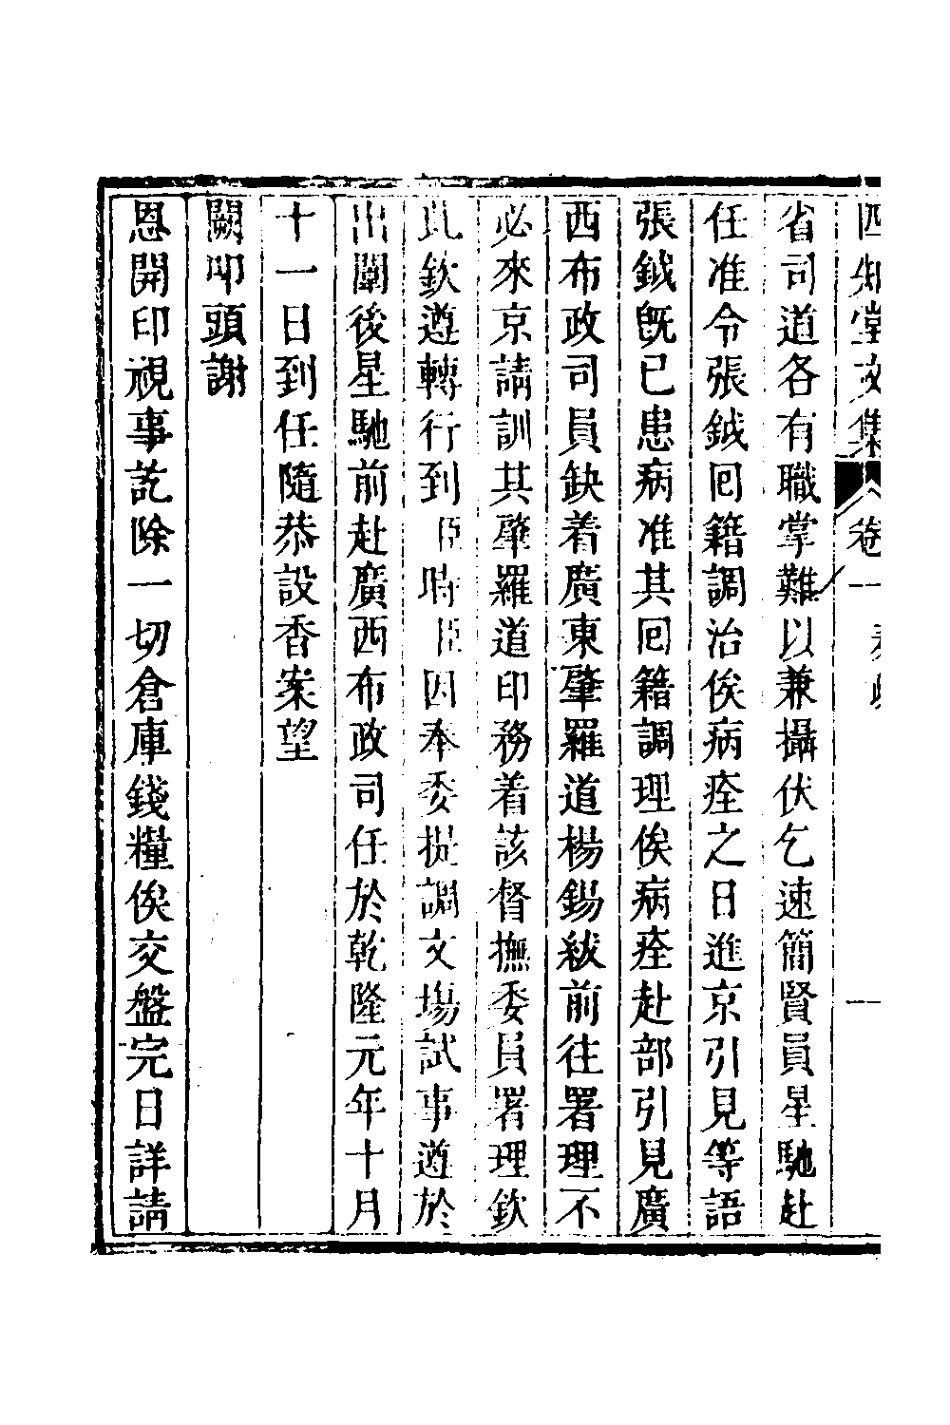 四知堂文集 卷一 奏疏 一
省司道各有職掌難以兼攝伏乞速簡賢員星馳赴
任准令張鉞囘籍調治俟病痊之日進京引見等語
張鉞旣已患病准其囘籍調理俟病痊赴部引見廣
西布政司員缺着廣東肇羅道楊錫紱前往署理不
必來京請訓其肇羅道印務着該督撫委員署理欽
此欽遵轉行到臣時臣因奉委提調文塲試事遵於
出闈後星馳前赴廣西布政司任於乾隆元年十月
十一日到任隨恭設香案望
闕叩頭謝
恩開印視事訖除一切倉庫錢糧俟交盤完日詳請